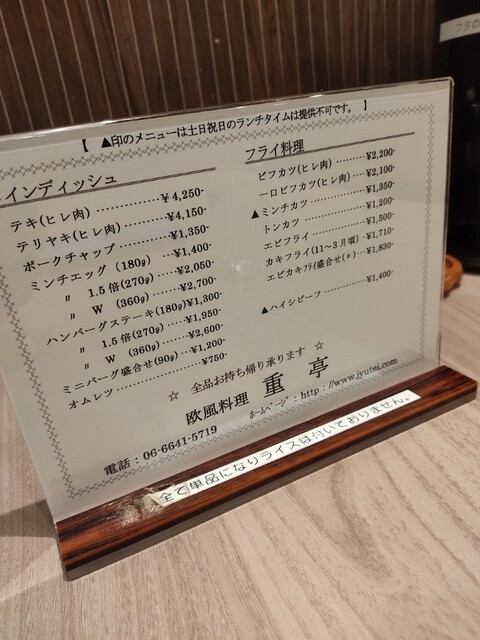 【 ▲印のメニューは土日祝日のランチタイムは提供不可です。 】
インディッシュ
テキ(ヒレ肉) ・・・・・・・・・・・・・¥4,250-
テリヤキ(ヒレ肉) ・・・・・・¥4,150-
ポークチャップ ・・・・・・・・¥1,350-
ミンチエッグ (180g) ・・・¥1,400-
〃 1.5倍(270g)・・・・・¥2,050-
〃 W (360g)・・・・・・¥2,700-
ハンバーグステーキ(180g)¥1,300-
〃 1.5倍(270g)・・・・・¥1,950-
〃 W (360g)・・・・・・¥2,600-
ミニバーグ盛合せ(90g)・・¥1,200-
オムレツ・・・・・・・・・・・・・・・・・¥750-
フライ料理
ビフカツ(ヒレ肉) ・・・・・・・・・¥2,200-
一口ビフカツ(ヒレ肉)・・・・・・¥2,100-
▲ミンチカツ・・・・・・・・・・・・・・¥1,350-
トンカツ ・・・・・・・・・・・・・・・・・¥1,200-
エビフライ・・・・・・・・・・・・・・・・¥1,500-
カキフライ(11～3月頃)・・・・¥1,710-
エビカキフライ(盛合せ(〃)・・・¥1,830-
▲ハイシビーフ・・・・・・・・・・・・¥1,400-
☆ 全品お持ち帰り承ります ☆
欧風料理 重亭
電話：06-6641-5719
ホームページ：http：//www.jyutei.com
全て単品になりライスは付いておりません。
フタの